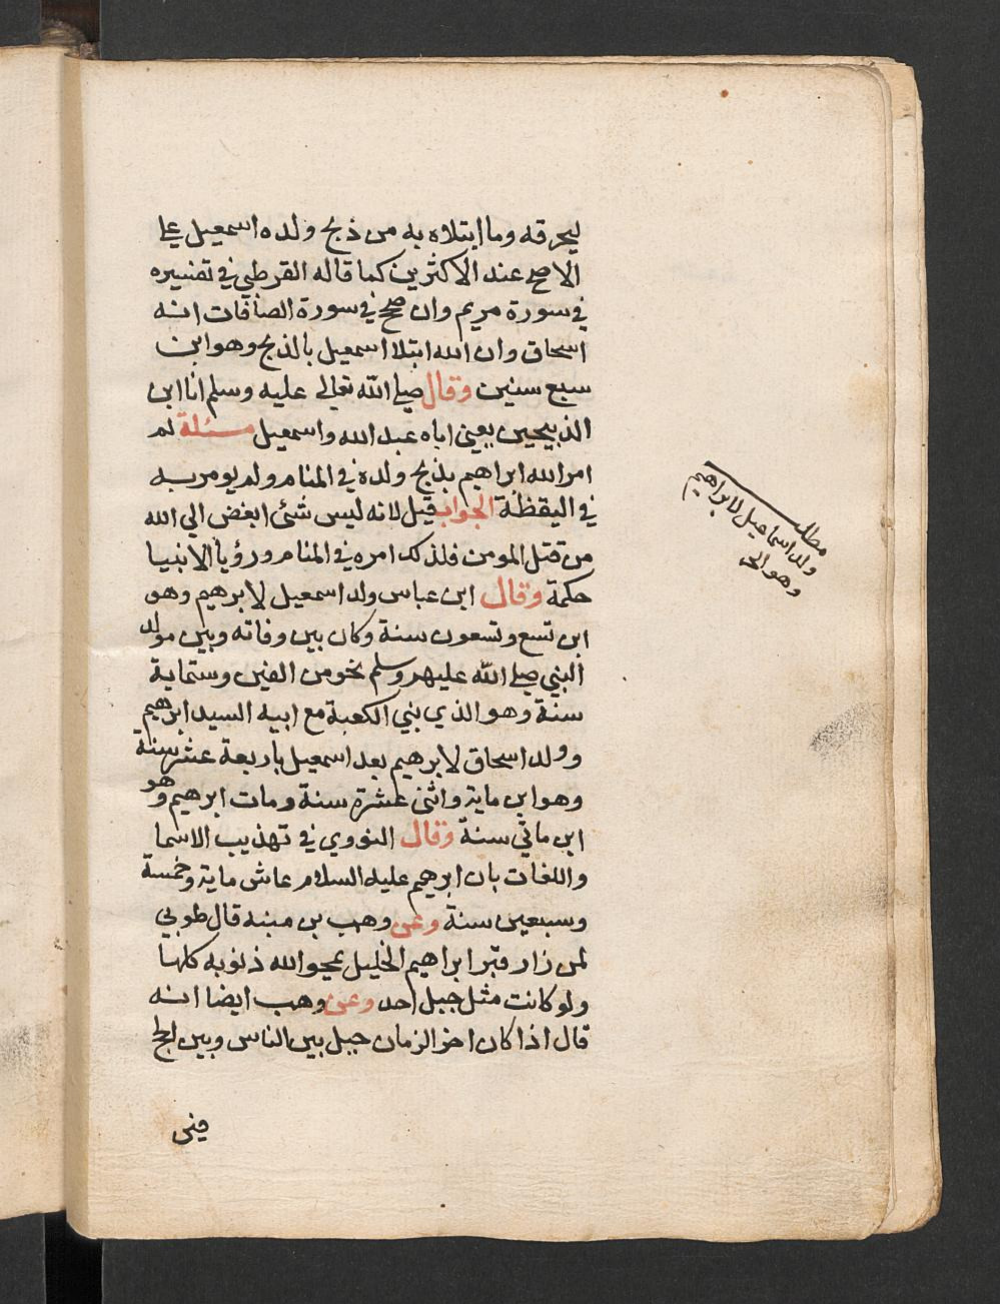 ليحرقه وما ابتلاه به من ذبح ولده اسمعيل علي
الاصح عند الاكثرين كما قاله القرطبي في تفسيره
في سورة مريم وان صح في سورة الصافات انه
اسحاق وان الله ابتلا اسمعيل بالذبح وهو ابن
سبع سنين وقال صلي الله تعالي عليه وسلم انا ابن
الذبيحين يعني اباه عبد الله واسمعيل مسئلة لم
امر الله ابراهيم بذبح ولده في المنام ولم يومر به
في اليقظة الجواب قيل لانه ليس شئ ابغض الي الله
من قتل المومن فلذلك امره في المنام ورؤيا الانبيا
حكمة وقال ابن عباس ولد اسمعيل لابرهيم وهو
ابن تسع وتسعون سنة وكان بين وفاته وبين مولد
النبي صلي الله عليهم وسلم نحو من الفين وستماية
سنة وهو الذي بني الكعبة مع ابيه السيد ابرهيم
وولد اسحاق لابرهيم بعد اسمعيل باربعة عشر سنة
وهو ابن ماية واثني عشرة سنة ومات ابرهيم وهو
ابن ماتي سنة وقال النووي في تهذيب الاسما
واللغات بان ابرهيم عليه السلام عاش ماية وخمسة
وسبعين سنة وعن وهب بن منبه قال طوبي
لمن زار قبر ابراهيم الخليل يمحو الله ذنوبه كلها
ولو كانت مثل جبل احد وعن وهب ايضا انه
قال اذا كان اخر الزمان حيل بين الناس وبين الحج
فمن
مطلب
ولد اسماعيل لابراهيم
وهو الخ